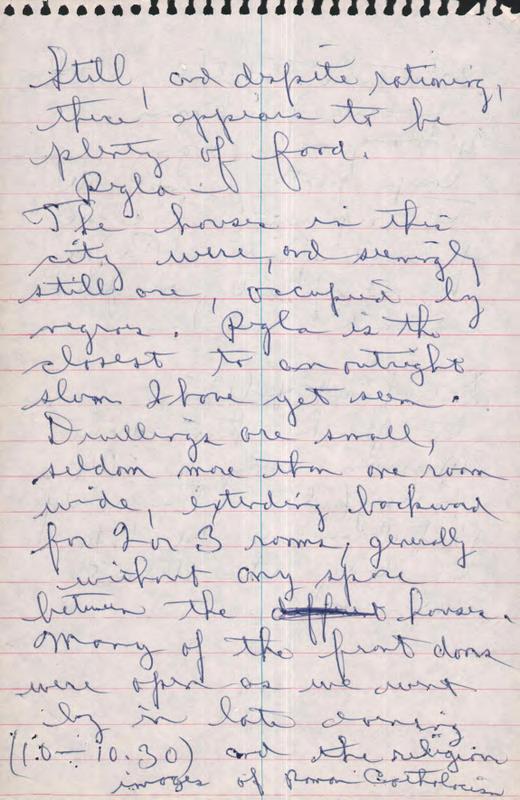 Still, and despite rationing,
there appears to be
plenty of food.
Regla —
The houses in this
city were, and seemingly
still are, occupied by
negros. Regla is the
closest to an outright
slum I have yet seen.
Dwellings are small,
seldom more than one room
wide, extending backward
for 2 or 3 rooms, generally
without any space
between the houses.
Many of the front doors
were open as we went
by in late evening
(10—10.30) and the religion
images of Roman Catholicism